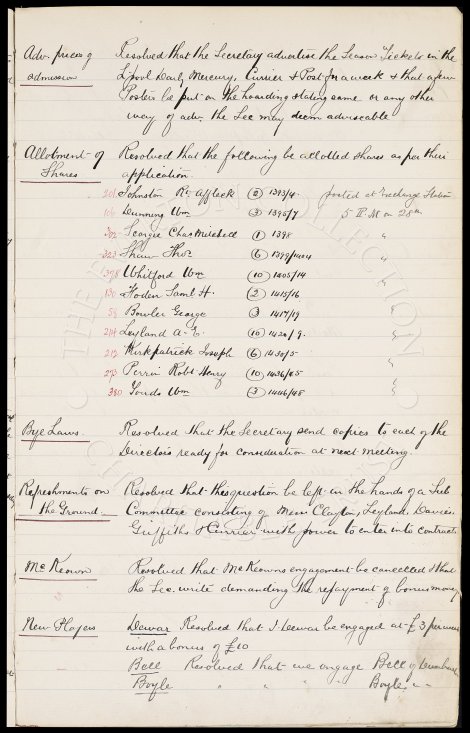 Adv. prices of Resolved that the Secretary advertise the Season Tickets in the
admission L'pool Daily Mercury, Currier & Post for a week & that a few
Posters be put on the hoarding stating same or any other
way of adv. the Sec may deem adviseable
Allotment of Resolved that the following be allotted shares as per their
Shares application.
201 Johnston Rt Affleck 2 1393/4 posted at Exchange Station
106 Dunning Wm 3 1395/7 5 P.M on 28th
302 Geo Chas Mitchell 1 1398 "
323 Shaw Thos 6 1399/1404 "
398 Whitford Wm 10 1405/14 "
130 Foden Saml H. 2 1415/16 "
54 Bowler George 3 1417/19 "
Leyland A. 10 1420/9 "
212 Kirkpatrick Joseph 6 1430/5 "
273 Perrin Robt Henry 10 1436/45 "
380 Wm 3 1446/48 "
THE EVERTON COLLECTION
Bye Laws. Resolved that the Secretary send copies to each of the
Directors ready for consideration at next meeting.
Refreshments on Resolved that this question be left in the hands of a Sub
the Ground Committee consisting of Messrs Clayton, Leyland, Davies
Griffiths & Currier with power to enter into contracts
McKeown Resolved that McKeowns engagement be cancelled & that
the Sec. write demanding the repayment of bonus money
New Players Dewar Resolved that J. Dewar be engaged at £3 per week
with a bonus of £10
Bell Resolved that we engage Bell of Dumbarton
Boyle " " " " Boyle "